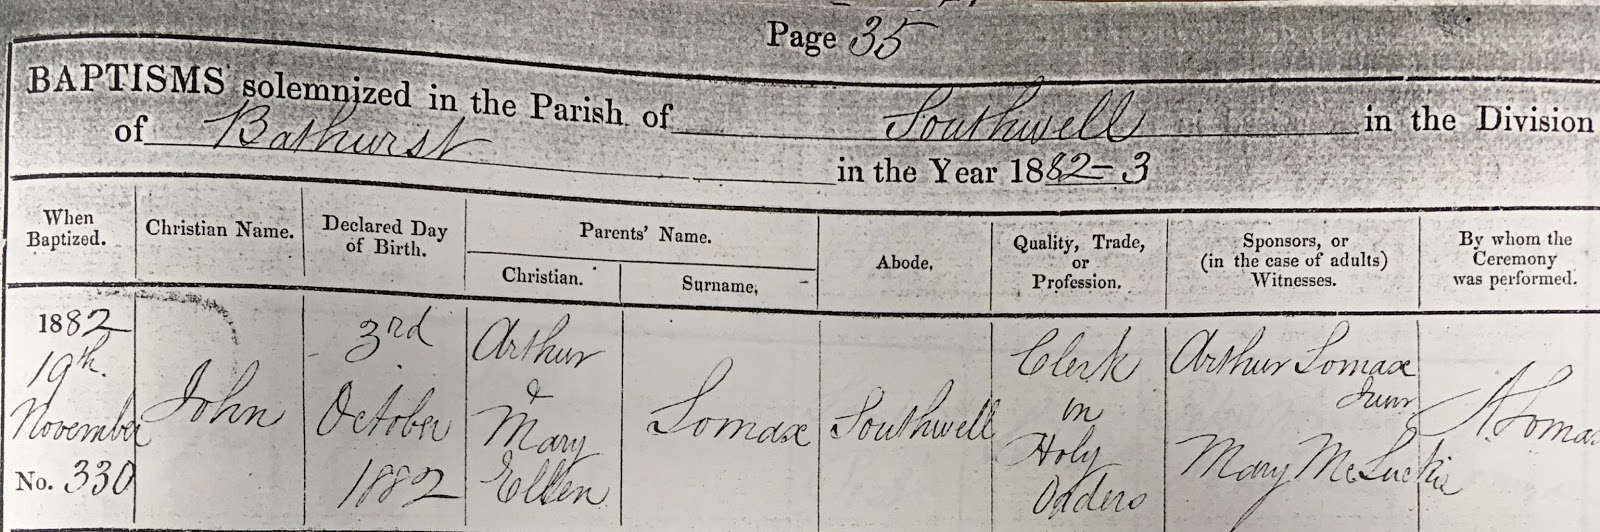 Page 35
BAPTISMS solemnized in the Parish of Southwell in the Division
of Bathurst in the Year 1882-3
When Baptized.
Christian Name.
Declared Day of Birth.
Parents' Name.
Christian.
Surname,
Abode,
Quality, Trade, or Profession.
Sponsors, or (in the case of adults) Witnesses.
By whom the Ceremony was performed.
1882
19th
November
No. 330
John
3rd
October
1882
Arthur
&
Mary
Ellen
Lomax
Southwell
Clerk
in
Holy
Orders
Arthur Lomax
Junr
Mary McLuckie
A. Lomax